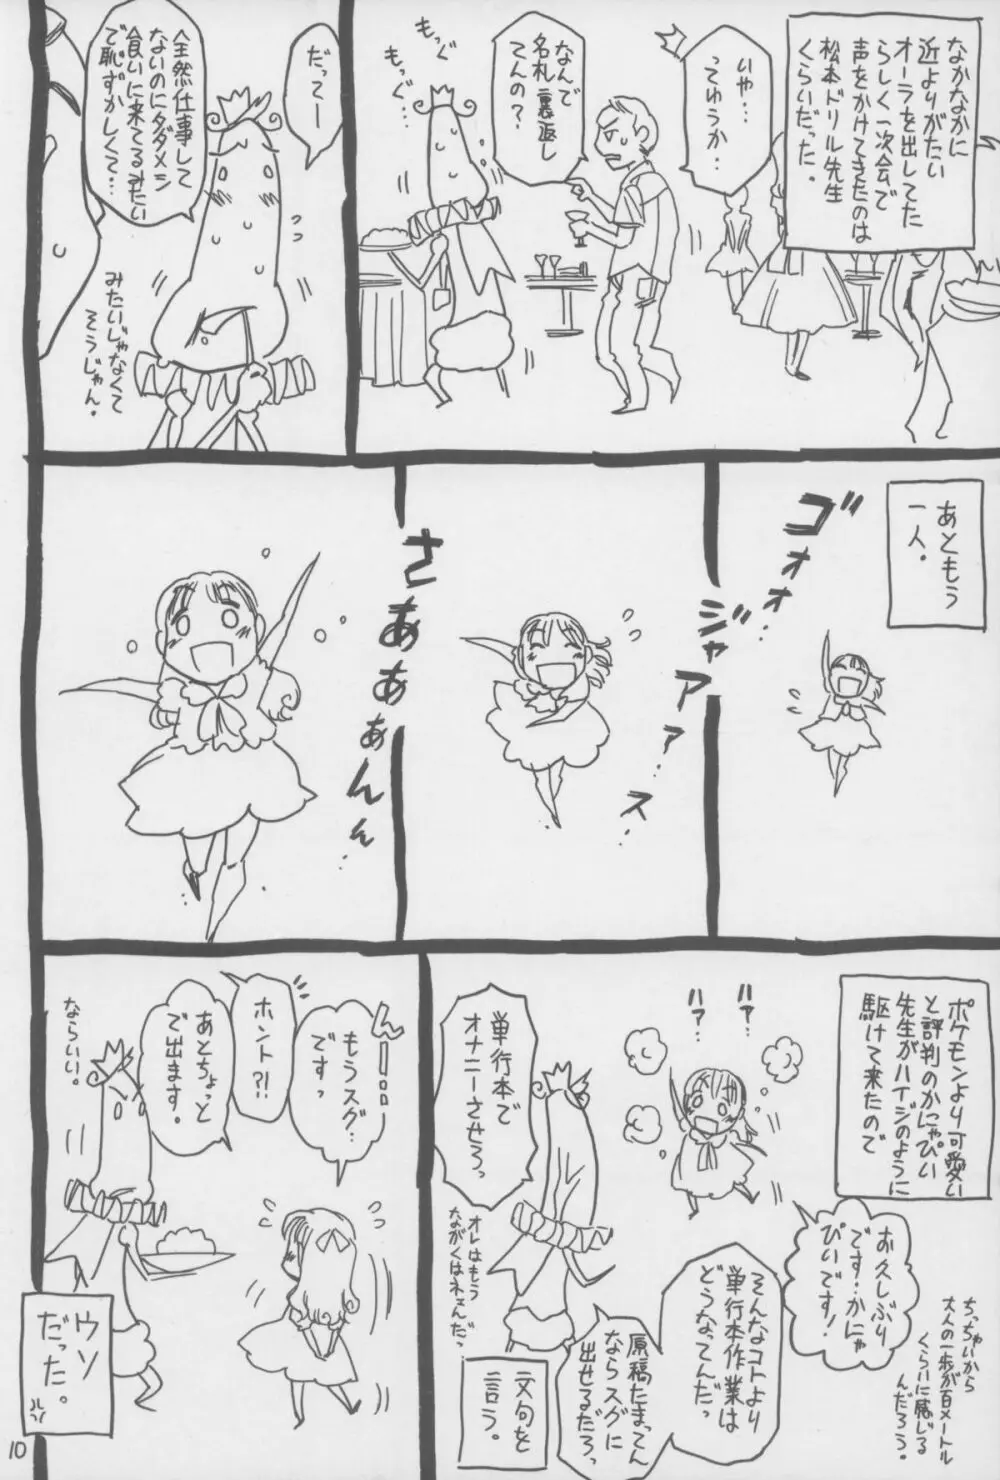 なかなかに
近よりがたい
オーラを出してた
らしく一次会で
声をかけてきたのは
松本ドリル先生
くらいだった。
いや…
ってゆうか…
なんで
名札裏返し
てんの？
もっぐ
もっぐ…
だってー
全然仕事して
ないのにタダメシ
食いに来てるみたい
で恥ずかしくて…
みたいじゃなくて
そうじゃん。
あともう
一人。
ゴォォ…
ジャアァァ…ス…
さあぁぁんん…
ポケモンより可愛い
と評判のかにゃぴぃ
先生がハイジのように
駆けて来たので
ハァ…
ハァ…
お久しぶり
です…かにゃ
ぴぃです！
ちっちゃいから
大人の一歩が百メートル
くらいに感じる
んだろう。
そんなコトより
単行本作業は
どうなってんだっ
原稿たまってん
ならスグに
出せるだろっ
単行本で
オナニーさせろっ
オレはもう
ながくはネェんだっ
文句を
言う。
んー…
もうスグ…
ですっ
ホント?!
あとちょっと
で出ます。
ならいい。
ウソ
だった。
10